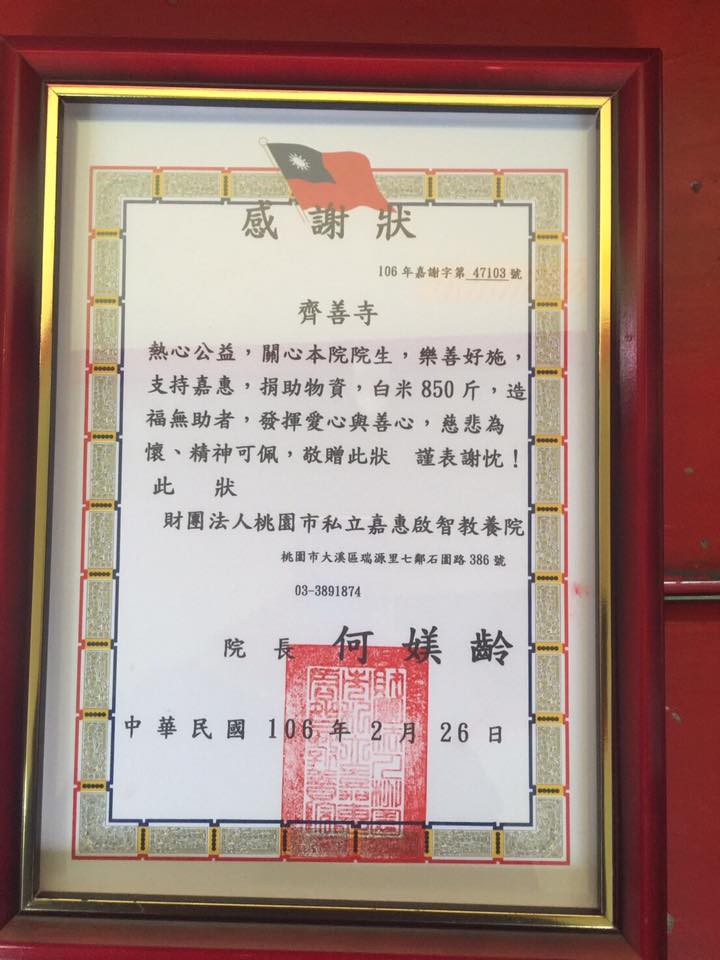 感謝狀
106年嘉謝字第 47103 號
齊善寺
熱心公益，關心本院院生，樂善好施，
支持嘉惠，捐助物資，白米850斤，造
福無助者，發揮愛心與善心，慈悲為
懷、精神可佩，敬贈此狀　謹表謝忱！
此　狀
財團法人桃園市私立嘉惠啟智教養院
桃園市大溪區瑞源里七鄰石園路386號
03-3891874
院長 何媄齡
中華民國 106 年 2 月 26 日